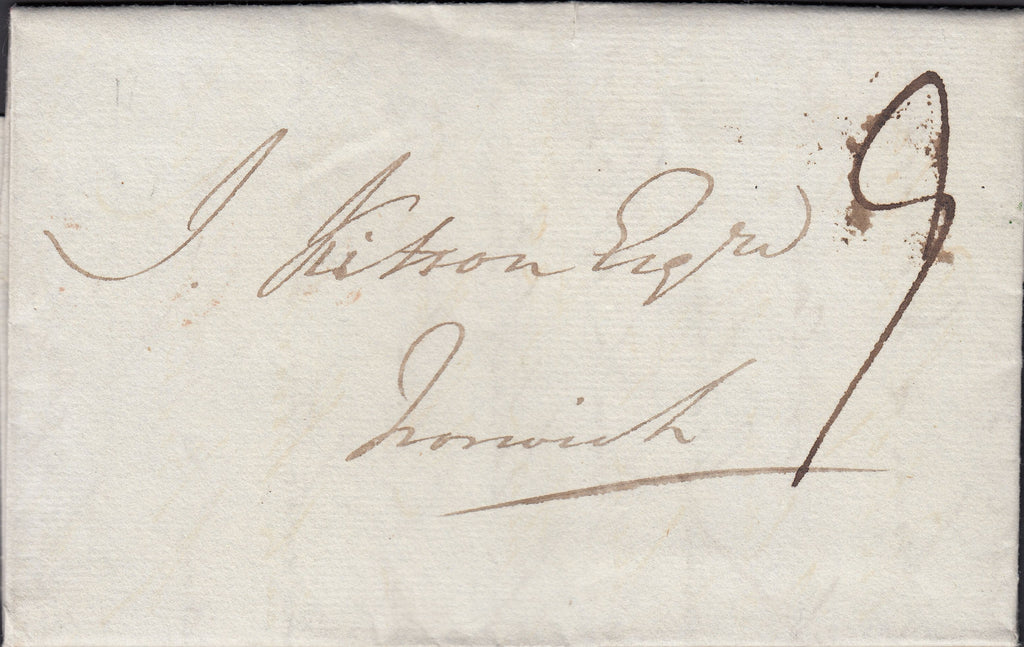 J. Kitson Esqre
Norwich
9